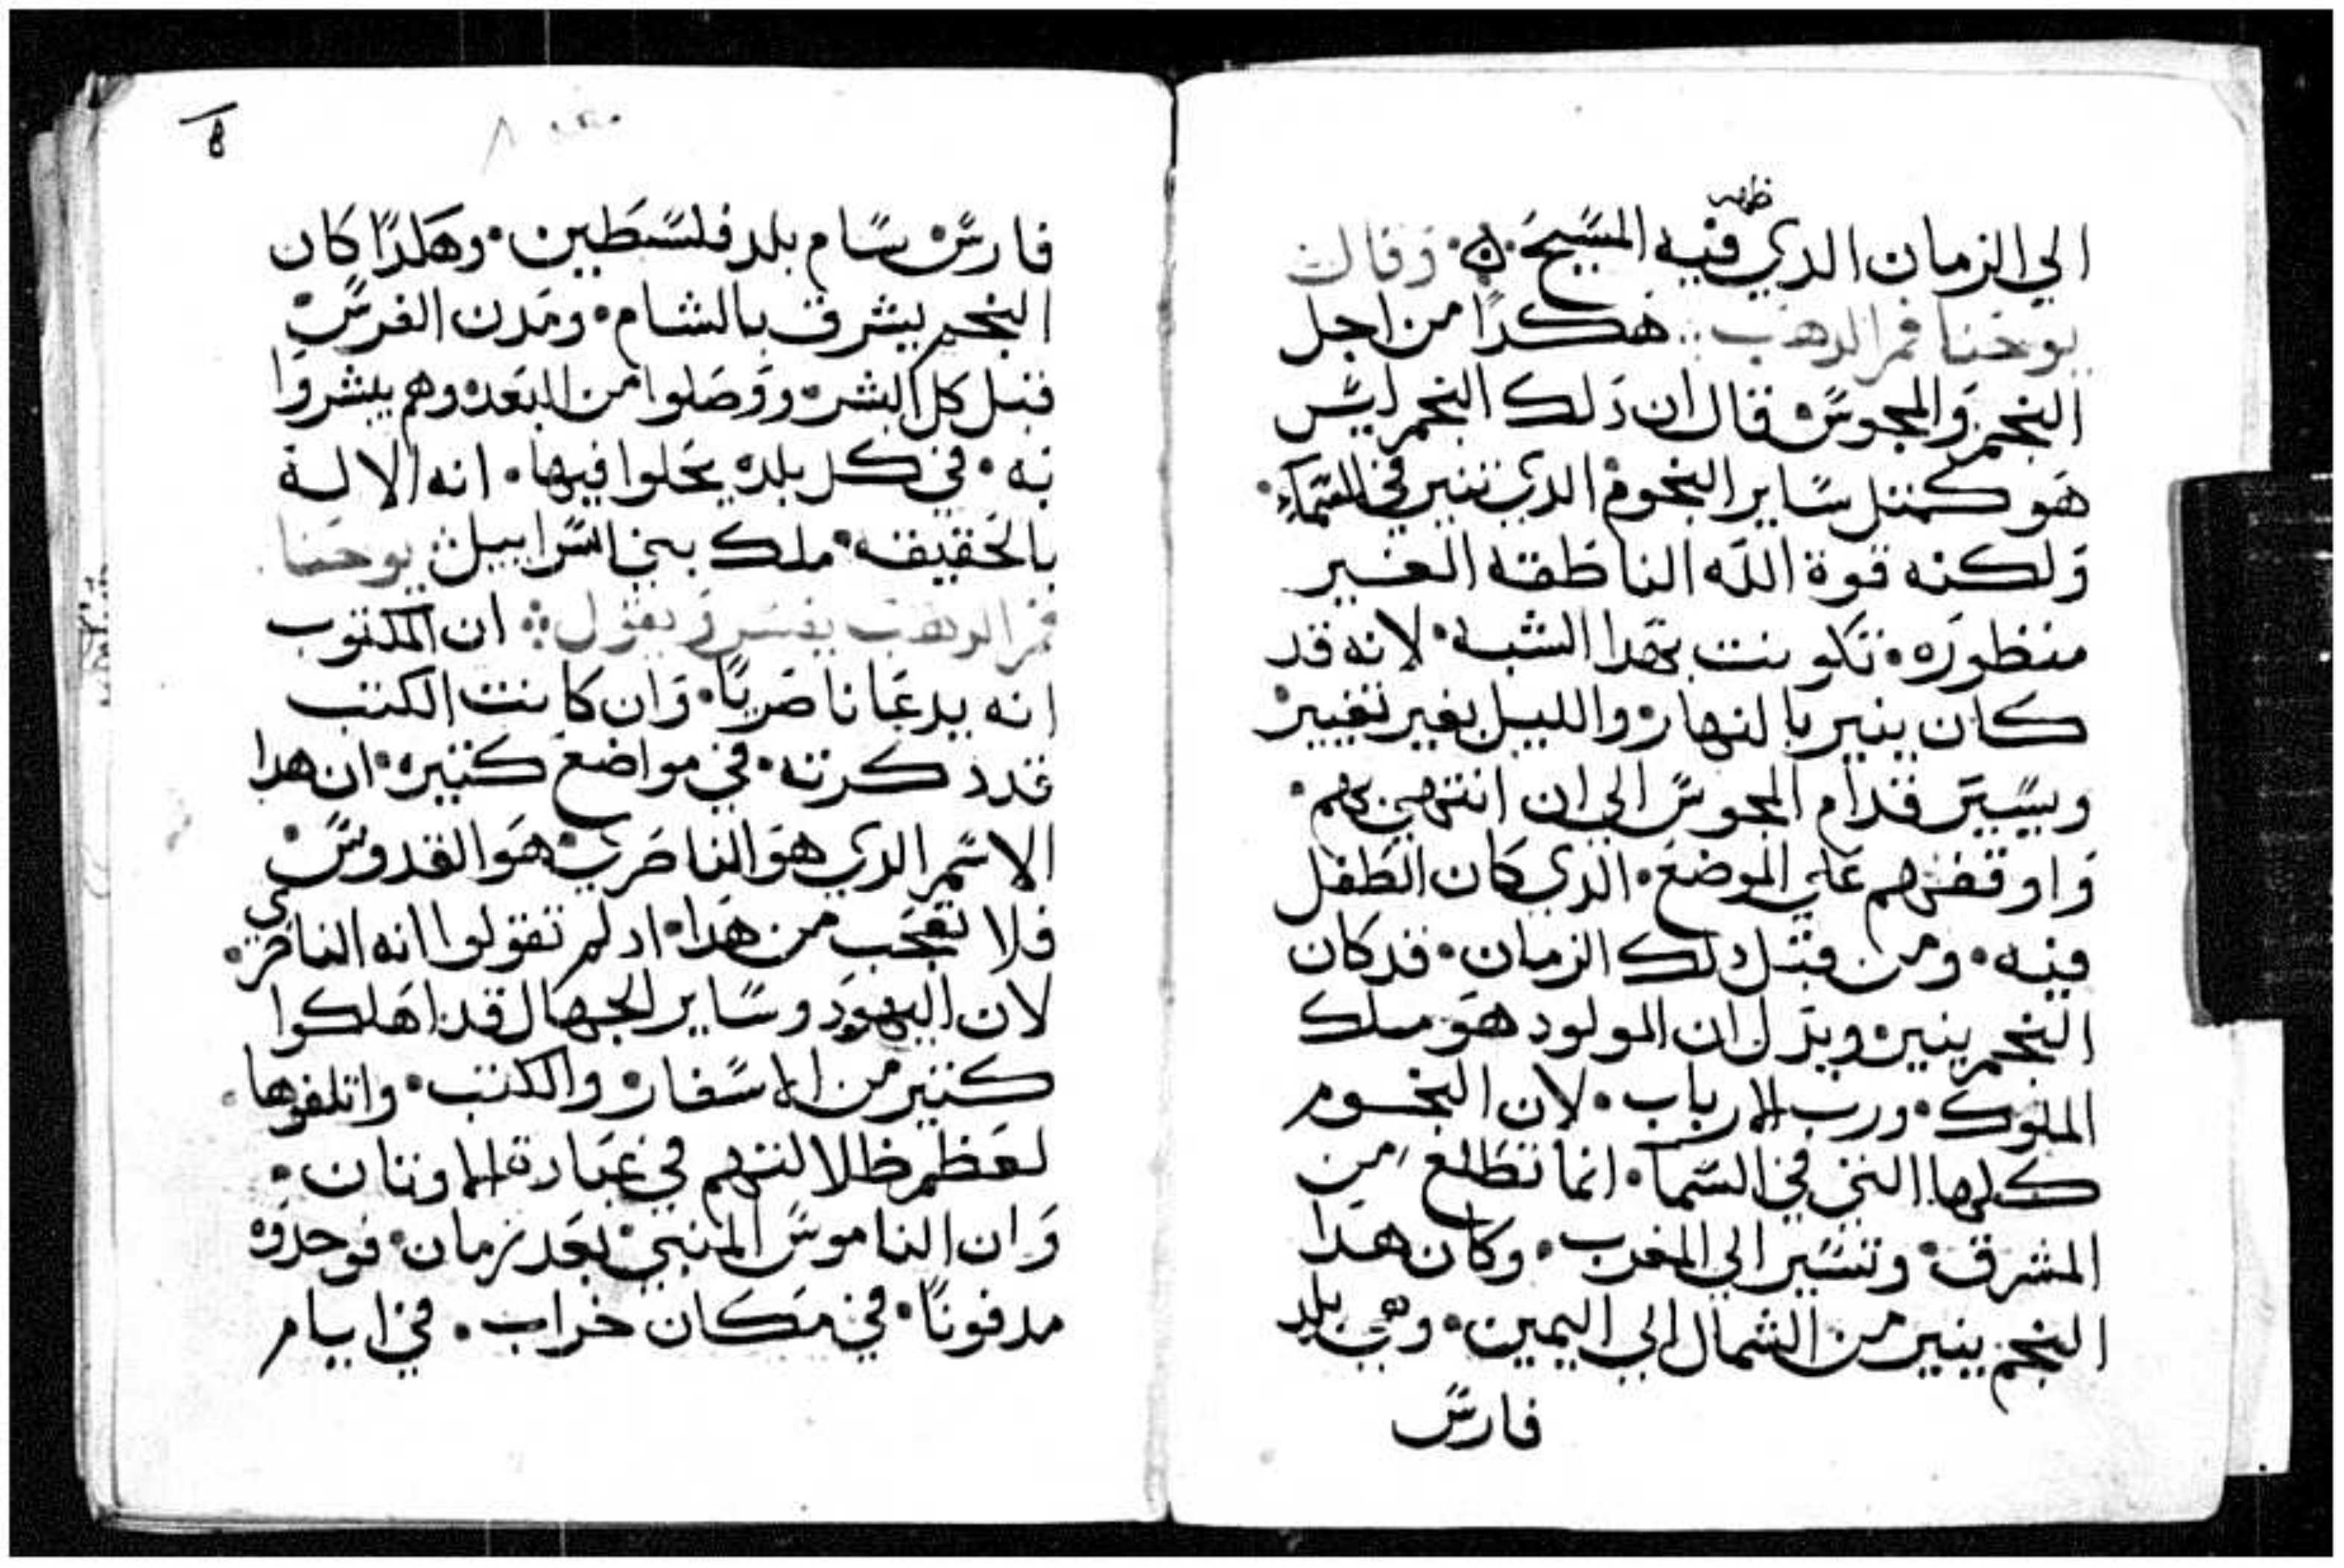 ظهر
الي الزمان الدي فيه المسيح ۞ وقال
يوحنا فم الدهب ۞ هكدا من اجل
النجم والمجوس قال ان دلك النجم ليس
هو كمتل ساير النجوم الدي تنير في السماء
ولكنه قوة الله الناطقه الغير
منظوره • تكونت بهدا الشبه • لانه قد
كان ينير بالنهار والليل بغير تغيير
ويسير قدام المجوس الي ان انتهي بهم •
واوقفهم علي الموضع • الدي كان الطفل
فيه • ومن قبل دلك الزمان • قد كان
النجم ينير ويدل ان المولود هو ملك
الملوك • ورب الارباب • لان النجوم
كلها التي في السما • انما تطلع من
المشرق • وتسير الي المغرب • وكان هدا
النجم ينير من الشمال الي اليمين • وهي بلد
فارس
٨
فارس سام بلد فلسطين • وهكدا كان
النجم يشرق بالشام • ومدن الفرس
قبل كل البشر ووصلوا من البعد وهم يبشروا
به • في كل بلده يحلوا فيها • انه الاله
بالحقيقه • ملك بني اسراييل ۞ يوحنا
فم الدهب يفسر ويقول ۞ ان المكتوب
انه يدعا ناصريا • وان كانت الكتب
قد دكرته • في مواضع كتيره • ان هدا
الاسم الدي هو الناصري هو القدوس
فلا تعجب من هدا • اد لم تقولوا انه الناصري •
لان اليهود وساير الجهال قد اهلكوا
كتير من الاسفار والكتب • واتلفوها •
لعظم ظلالتهم في عبادة الاوتان •
وان الناموس المنبي بعد زمان • فوجدوه
مدفونا • في مكان خراب • في ايام